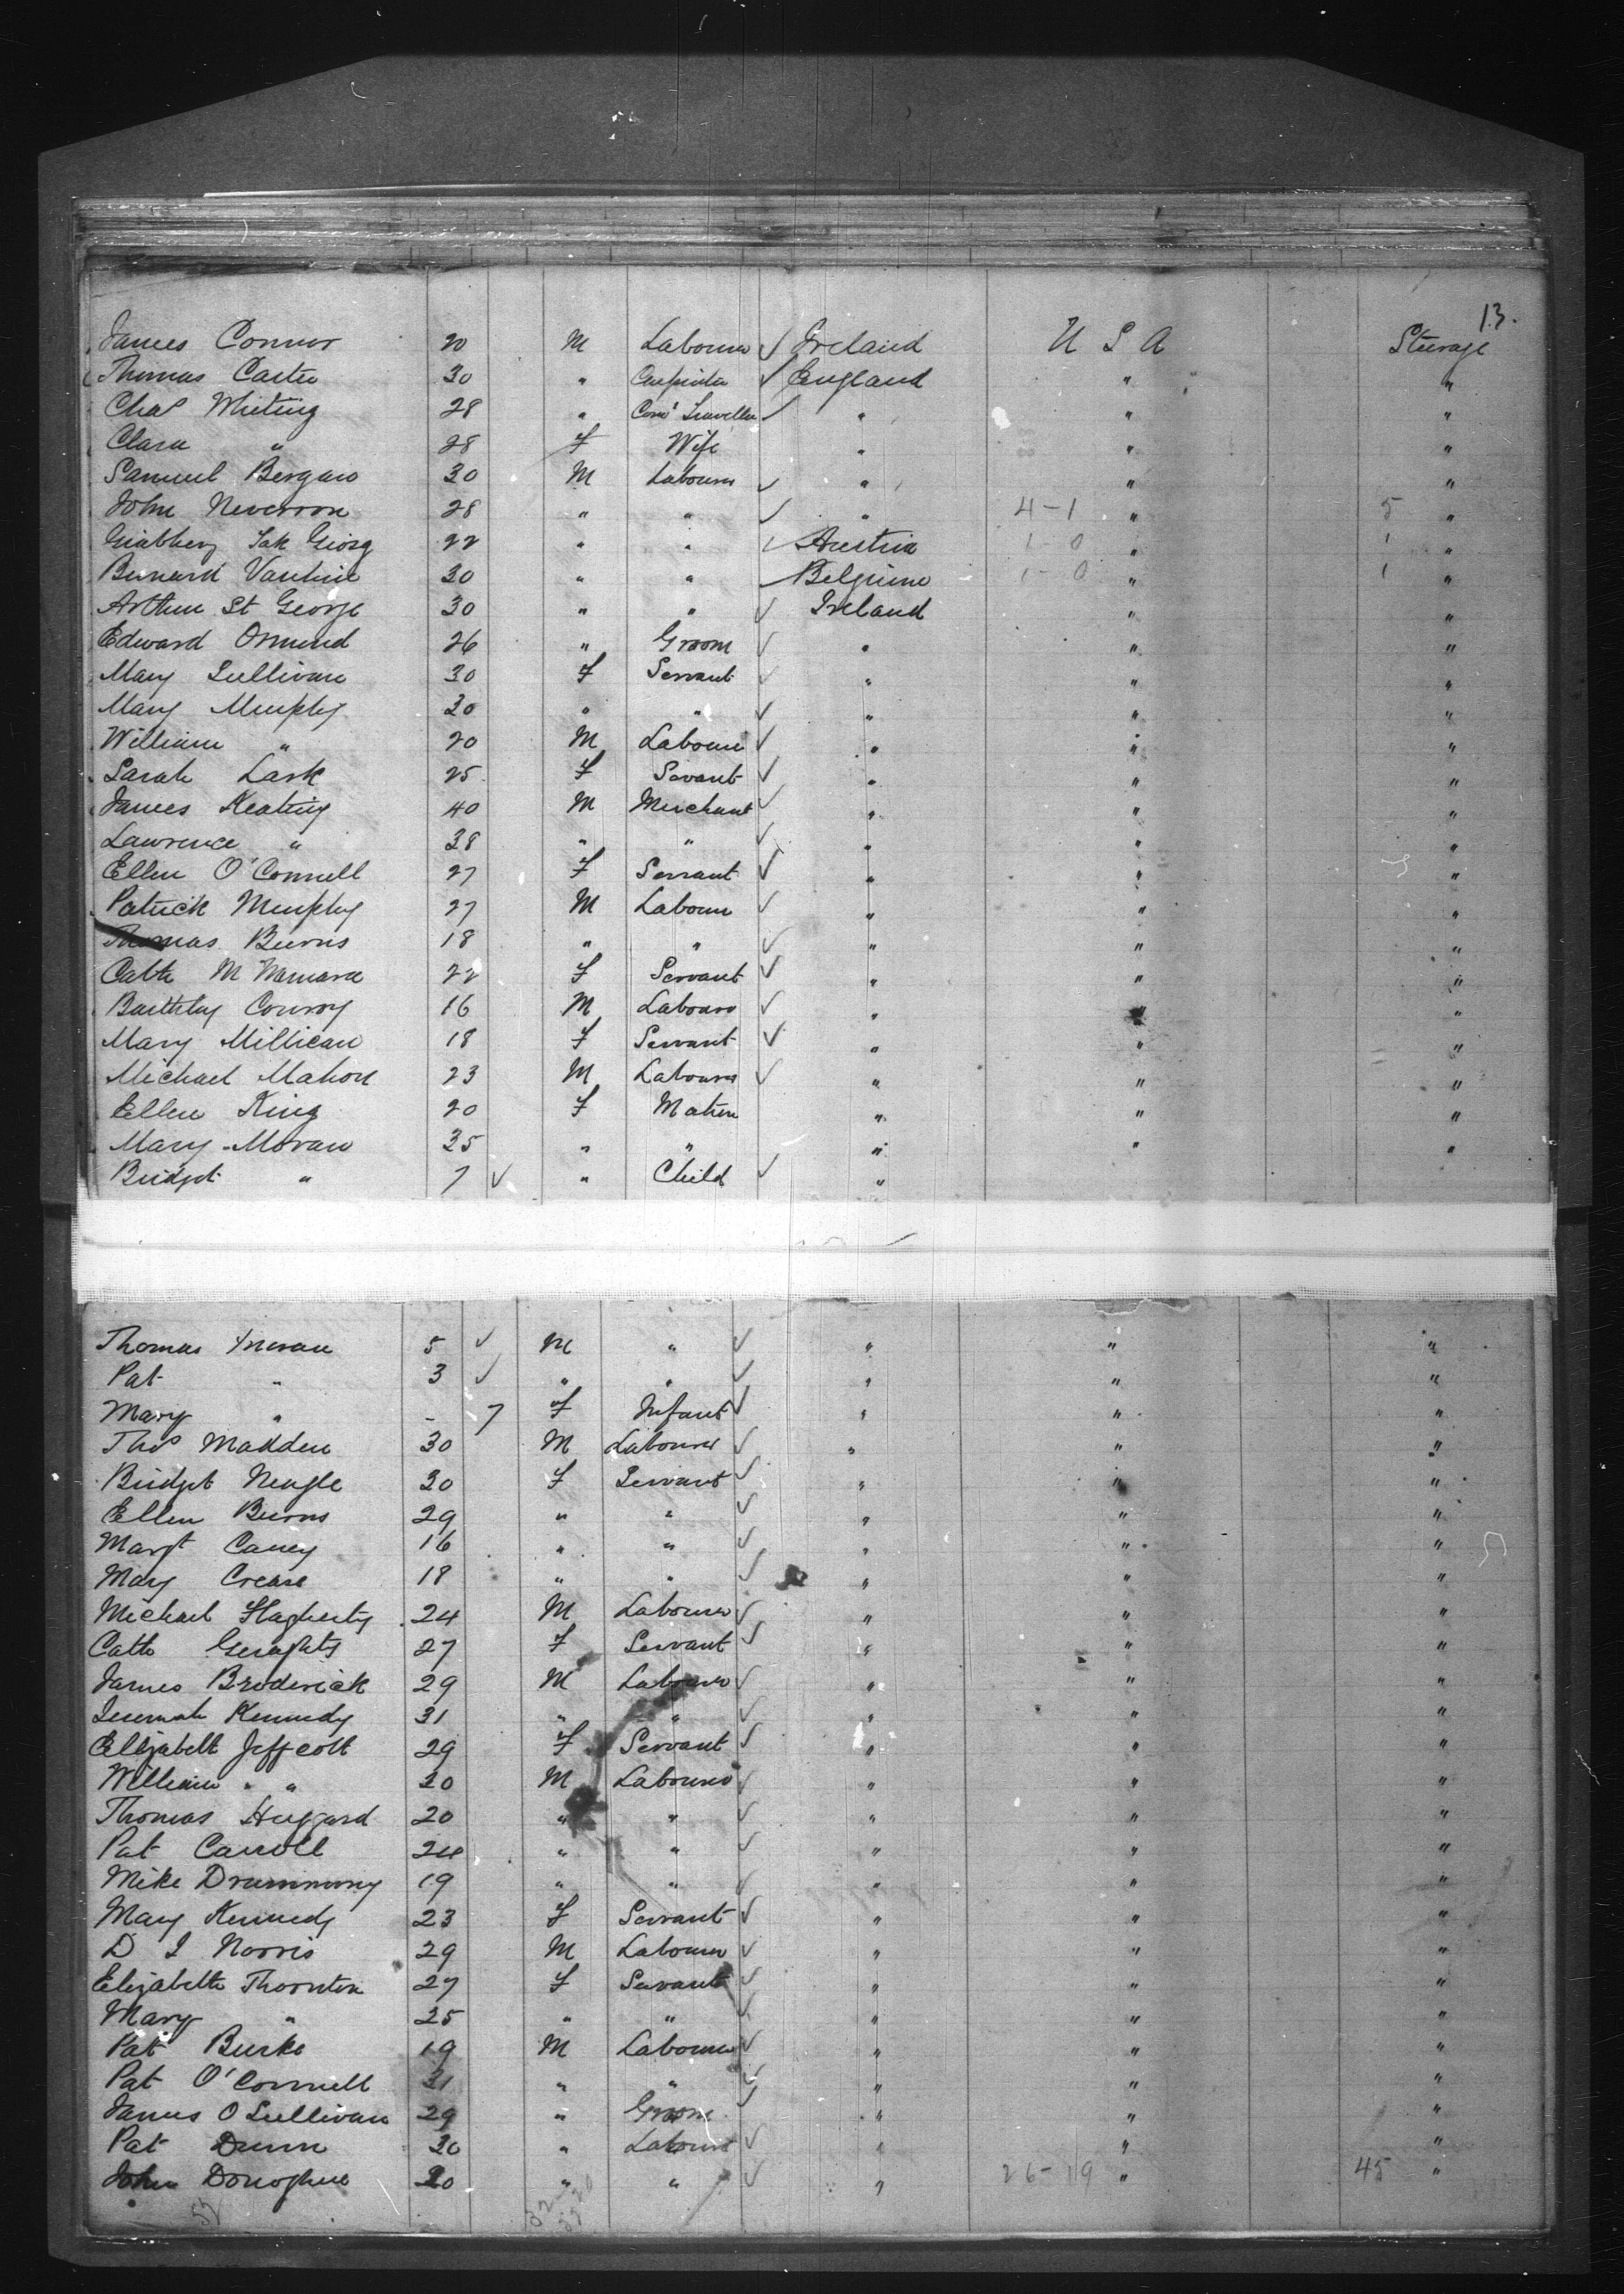 13.
James Connor 20 M Labourer ✓ Ireland U S A Steerage
Thomas Carter 30 " Carpenter ✓ England " "
Chas Whiting 28 " Coml Traveller ✓ " " "
Clara " 28 F Wife " " "
Samuel Bergan 30 M Labourer ✓ " " "
John Neverron 28 " " ✓ " 4-1 " 5 "
Tak Giosg 22 " " ✓ Austria 1-0 " 1 "
Bernard 30 " " ✓ Belgium 1-0 " 1 "
Arthur St George 30 " " ✓ Ireland " "
Edward Ormond 26 " Groom ✓ " " "
Mary Sullivan 30 F Servant ✓ " " "
Mary Murphy 30 " " ✓ " " "
William " 20 M Labourer ✓ " " "
Sarah Lask 25 F Servant ✓ " " "
James Keating 40 M Merchant ✓ " " "
Lawrence " 38 " " ✓ " " "
Ellen O'Connell 27 F Servant ✓ " " "
Patrick Murphy 27 M Labourer ✓ " " "
Thomas Burns 18 " " ✓ " " "
Cath McNamara 22 F Servant ✓ " " "
Barthly Conroy 16 M Labourer ✓ " " "
Mary Millican 18 F Servant ✓ " " "
Michael Mahon 23 M Labourer ✓ " " "
Ellen King 20 F Matron " " "
Mary Moran 35 " " " " "
Bridget " 7 ✓ " Child ✓ "
Thomas Moran 5 ✓ M " ✓ " " "
Pat " 3 ✓ " " ✓ " " "
Mary " - 7 F Infant ✓ " " "
Thos Madden 30 M Labourer ✓ " " "
Bridget Neagle 30 F Servant ✓ " " "
Ellen Burns 29 " " ✓ " " "
Margt Caney 16 " " ✓ " " "
Mary Crease 18 " " ✓ " " "
Michael Flagherty 24 M Labourer ✓ " " "
Cath Geraghty 27 F Servant ✓ " " "
James Broderick 29 M Labourer ✓ " " "
Jeremah Kennedy 31 " " ✓ " " "
Elizabeth Jeffcott 29 F Servant ✓ " " "
William " " 20 M Labourer ✓ " " "
Thomas Huggard 20 " " ✓ " " "
Pat Carroll 24 " " ✓ " " "
Mike Drummony 19 " " ✓ " " "
Mary Kennedy 23 F Servant ✓ " " "
D J Norris 29 M Labourer ✓ " " "
Elizabeth Thornton 27 F Servant ✓ " " "
Mary " 25 " " ✓ " " "
Pat Burke 19 M Labourer ✓ " " "
Pat O'Connell 31 " " ✓ " " "
James O Sullivan 29 " Groom ✓ " " "
Pat Dunn 30 " Labourer ✓ " " "
John Donoghue 20 " " ✓ " 26-19 " 45 "
52 32 20